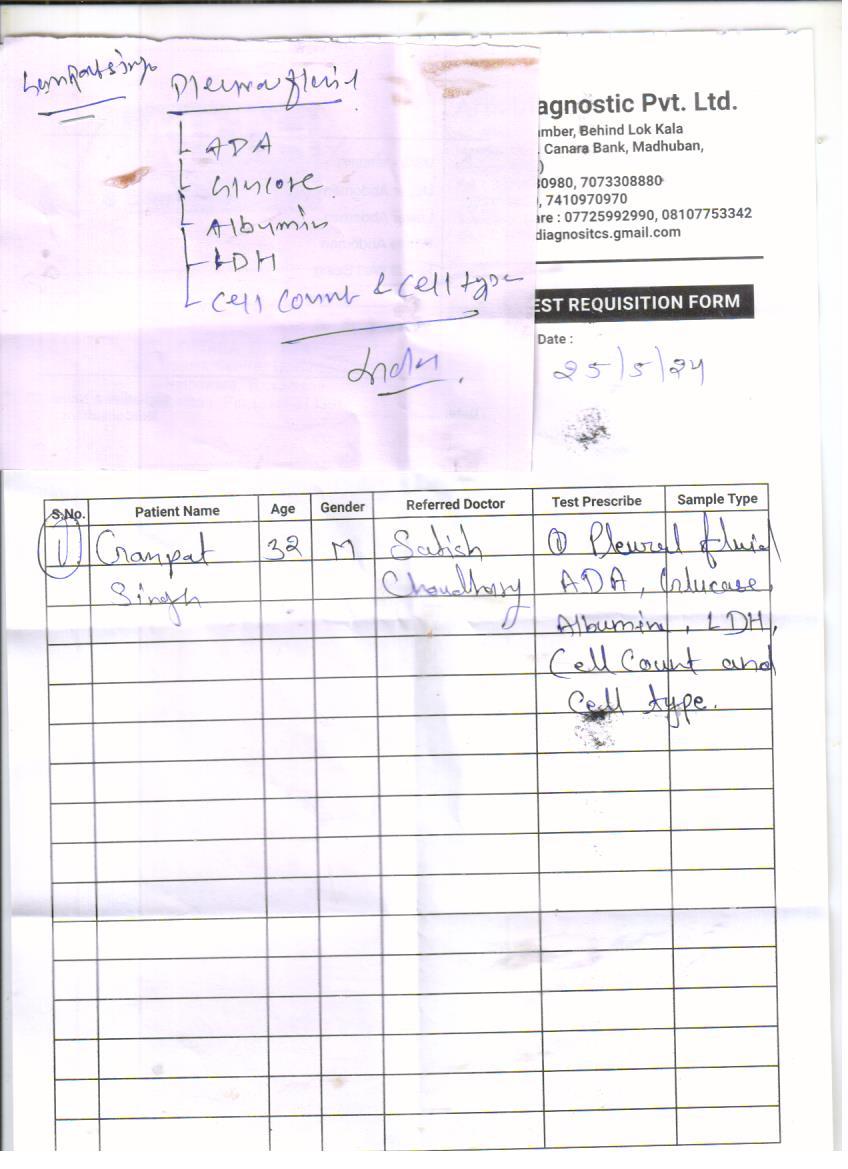 Pleura fluid
ADA
Glucose
Albumin
LDH
Cell Count & Cell type
agnostic Pvt. Ltd.
mber, Behind Lok Kala
Canara Bank, Madhuban,
)
30980, 7073308880
, 7410970970
are : 07725992990, 08107753342
diagnositcs.gmail.com
EST REQUISITION FORM
Date :
25/5/24
S.No. Patient Name Age Gender Referred Doctor Test Prescribe Sample Type
1. Ganpat 32 M Satish ① Pleural fluid
Singh Choudhary ADA, Glucose,
Albumin, LDH,
Cell Count and
Cell type.